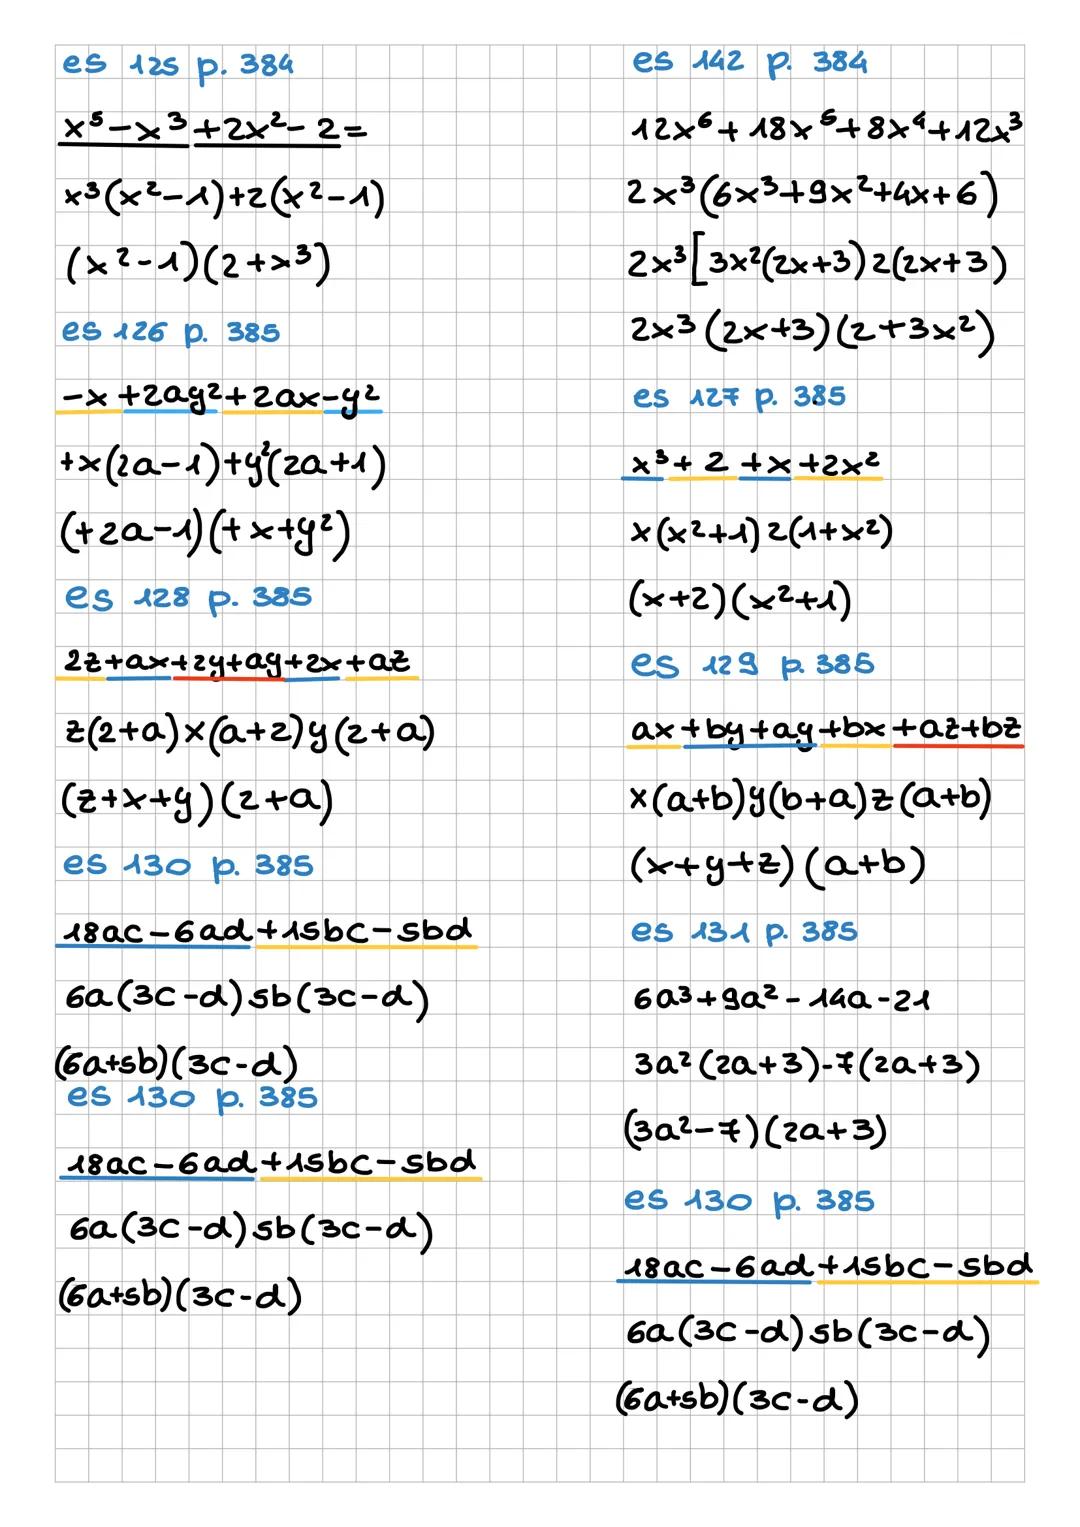 es 125 p. 384
x⁵-x³+2x²-2=
x³(x²-1)+2(x²-1)
(x²-1)(2+x³)
es 126 p. 385
-x+2ay²+2ax-y²
+x(2a-1)+y²(2a+1)
(+2a-1)(+x+y²)
es 128 p. 385
2z+ax+2y+ay+2x+az
z(2+a)x(a+2)y(2+a)
(z+x+y)(2+a)
es 130 p. 385
18ac-6ad+15bc-5bd
6a(3c-d)5b(3c-d)
(6a+5b)(3c-d)
es 130 p. 385
18ac-6ad+15bc-5bd
6a(3c-d)5b(3c-d)
(6a+5b)(3c-d)
es 142 p. 384
12x⁶+18x⁵+8x⁴+12x³
2x³(6x³+9x²+4x+6)
2x³[3x²(2x+3)2(2x+3)
2x³(2x+3)(2+3x²)
es 127 p. 385
x³+2+x+2x²
x(x²+1)2(1+x²)
(x+2)(x²+1)
es 129 p. 385
ax+by+ay+bx+az+bz
x(a+b)y(b+a)z(a+b)
(x+y+z)(a+b)
es 131 p. 385
6a³+9a²-14a-21
3a²(2a+3)-7(2a+3)
(3a²-7)(2a+3)
es 130 p. 385
18ac-6ad+15bc-5bd
6a(3c-d)5b(3c-d)
(6a+5b)(3c-d)